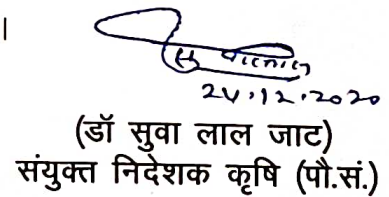 ।
24.12.2020
(डॉ सुवा लाल जाट)
संयुक्त निदेशक कृषि (पौ.सं.)